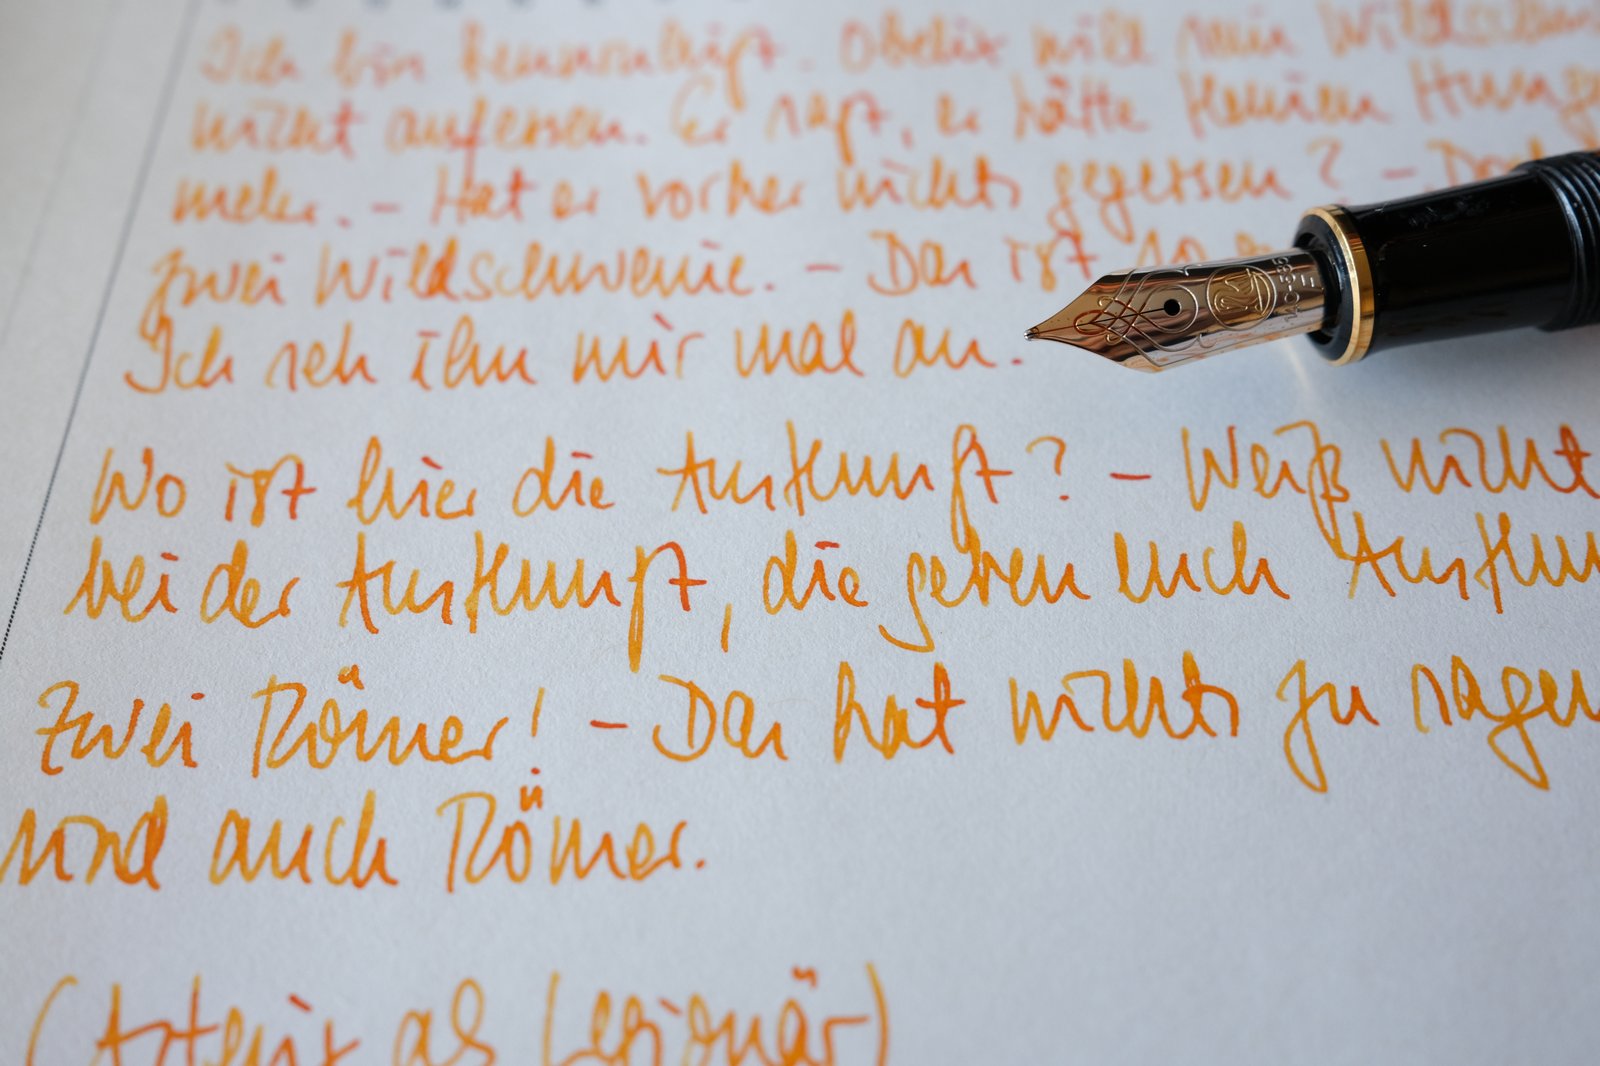 Ich bin beunruhigt. Obelix will sein Wildschwein
nicht aufessen. Er sagt, er hätte keinen Hunger
mehr. - Hat er vorher nichts gegessen? - Doch
zwei Wildschweine. - Das ist so
Ich seh ihn mir mal an.
Wo ist hier die Auskunft? - Weiß nicht
bei der Auskunft, die geben euch Auskun
Zwei Römer! - Das hat nichts zu sagen
sind auch Römer.
(Asterix als Legionär)
14C-585